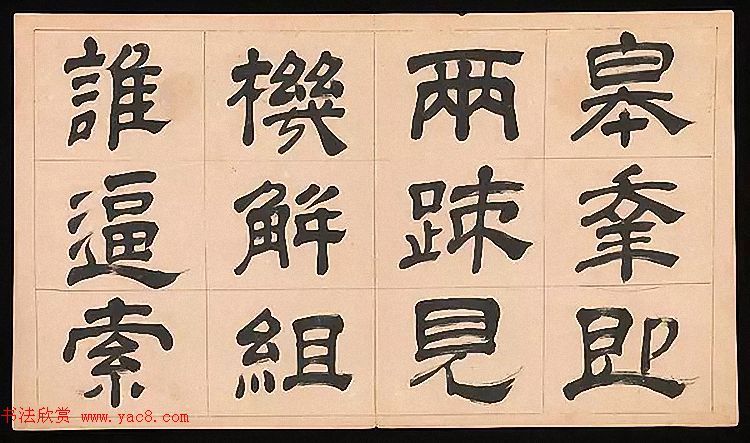 皋幸即
兩踈見
機解組
誰逼索
书法欣赏 www.yac8.com